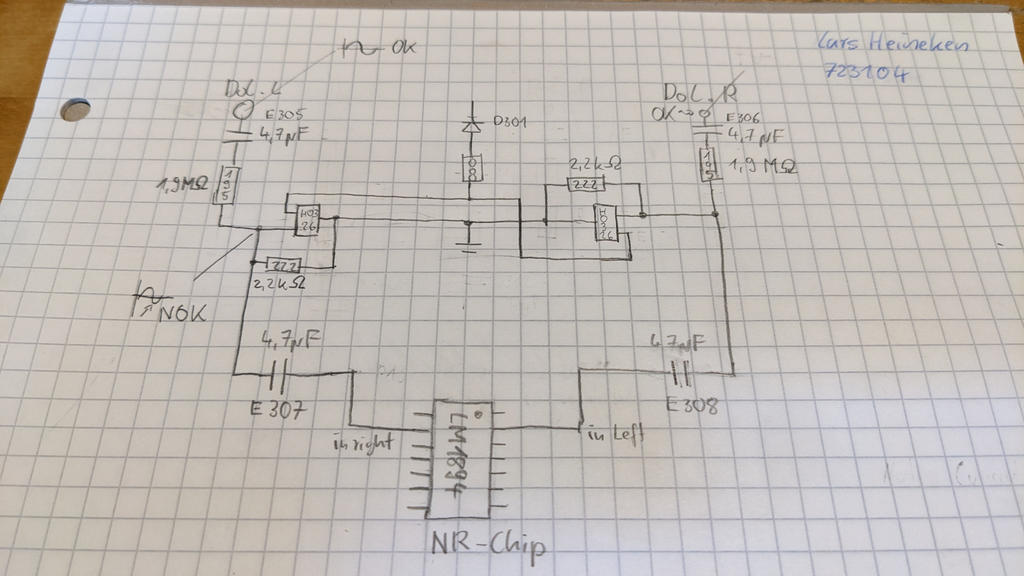 OK
Lars Heineken
723104
Dol. L
E305
4,7µF
1,9MΩ
195
D301
Dol. R
OK→
E306
4,7µF
195
1,9MΩ
2,2kΩ
222
H03
26
222
2,2kΩ
NOK
4,7µF
E307
4,7µF
E308
in right
LM1894
in Left
NR-Chip